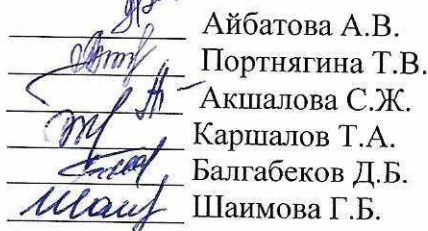 Айбатова А.В.
Портнягина Т.В.
Акшалова С.Ж.
Каршалов Т.А.
Балгабеков Д.Б.
Шаимова Г.Б.